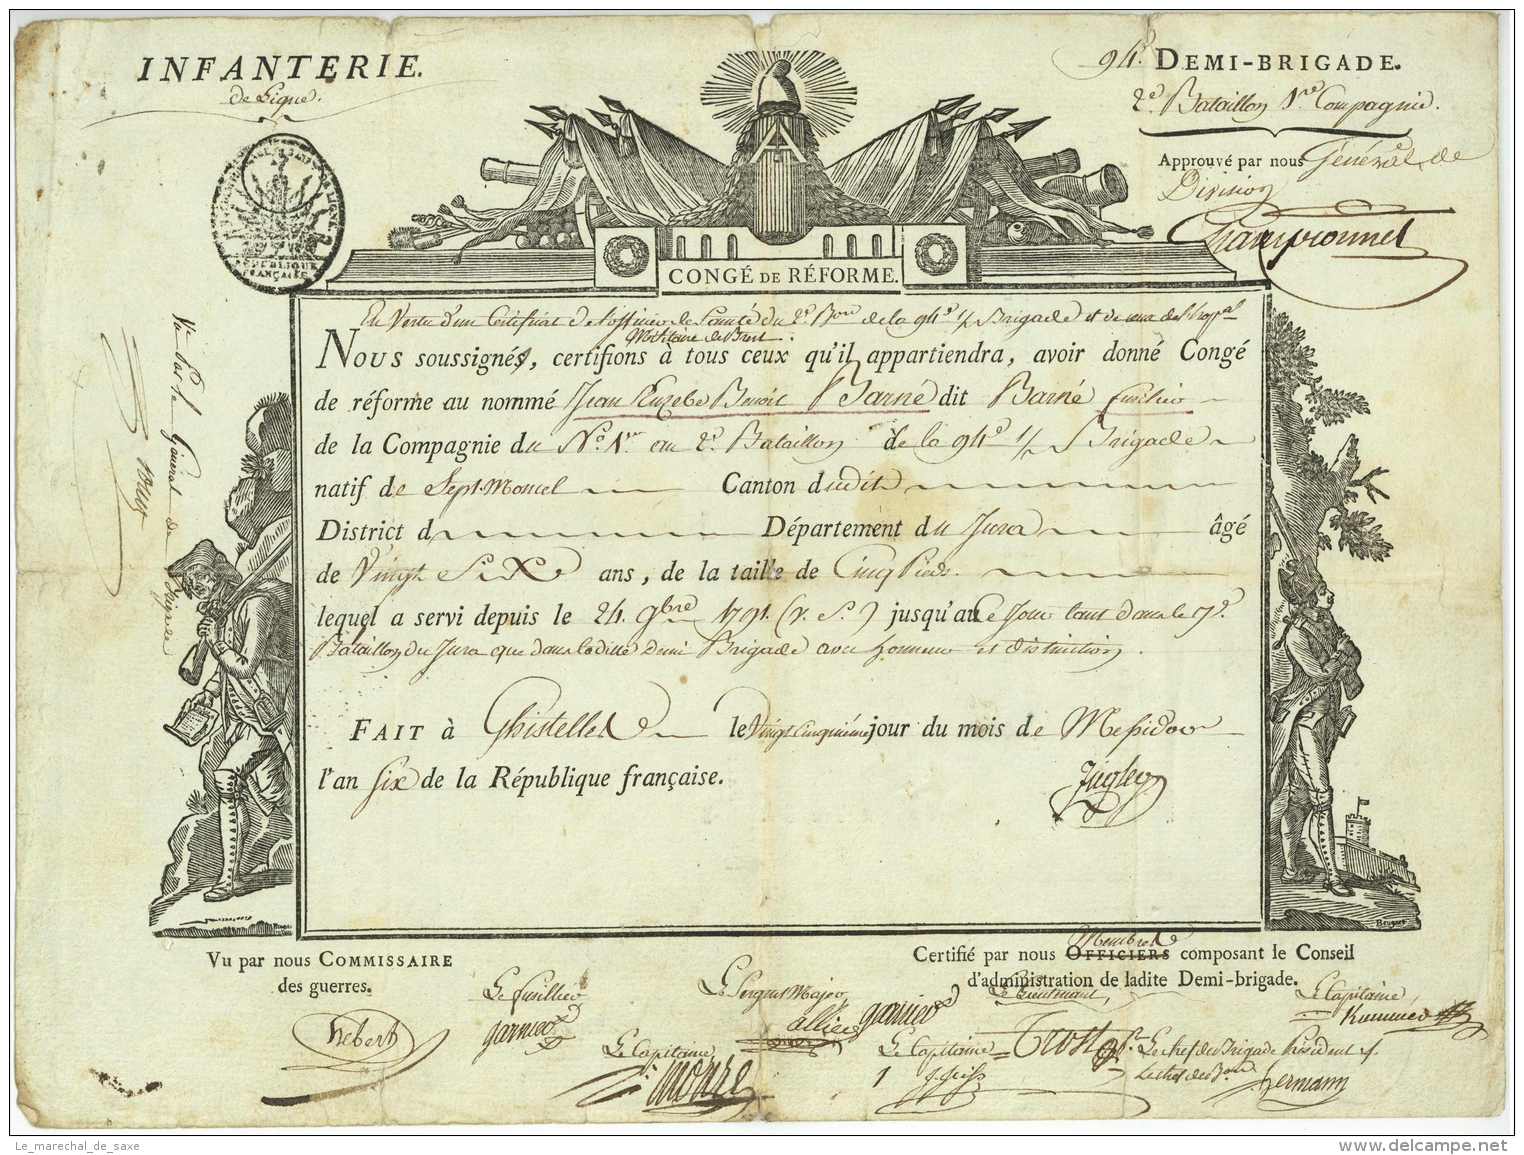 INFANTERIE.
de Ligne.
94e. DEMI-BRIGADE.
2e. Bataillon 1re Compagnie.
Approuvé par nous Général de
Division
Championnet
RÉPUBLIQUE
FRANÇAISE
CONGÉ DE RÉFORME.
En Vertu d'un Certificat de l'officier de Santé du 2e. Bon de la 94e 1/2 Brigade et de ceux de l'hopal
Militaire de
NOUS soussignés, certifions à tous ceux qu'il appartiendra, avoir donné Congé
de réforme au nommé Jean Euzebe Benoit Barné dit Barné fusilier
de la Compagnie du No. 1er au 2e. Bataillon de la 94e 1/2 Brigade
natif de Sept-Moncel Canton dudit
District d Département du Jura âgé
de Vingt Six ans, de la taille de Cinq Pieds.
lequel a servi depuis le 24. 9bre 1791. (v. S.) jusqu'au Ce Jour tant dans le 7e.
Bataillon du Jura que dans la ditte Demi Brigade avec honneur et distinction.
FAIT à Ghistelles le Vingt Cinquième jour du mois de Messidor
l'an Six de la République française.
Vu Par le Général de Brigade
Vu par nous COMMISSAIRE
des guerres.
hebert
Certifié par nous Membres OFFICIERS composant le Conseil
d'administration de ladite Demi-brigade.
Le fusillier
garnier
Le Sergent Major
allier
garnier
Le Lieutenant,
Trost
Le Capitaine
Kummer
Le Capitaine
Le Capitaine
Le chef de Brigade Président
Le chef de Bon
hermann
Le_marechal_de_saxe
www.delcampe.net